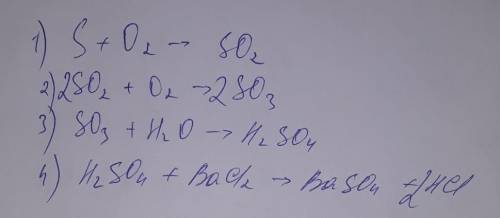 1) S + O₂ → SO₂
2) 2SO₂ + O₂ → 2SO₃
3) SO₃ + H₂O → H₂SO₄
4) H₂SO₄ + BaCl₂ → BaSO₄ + 2HCl